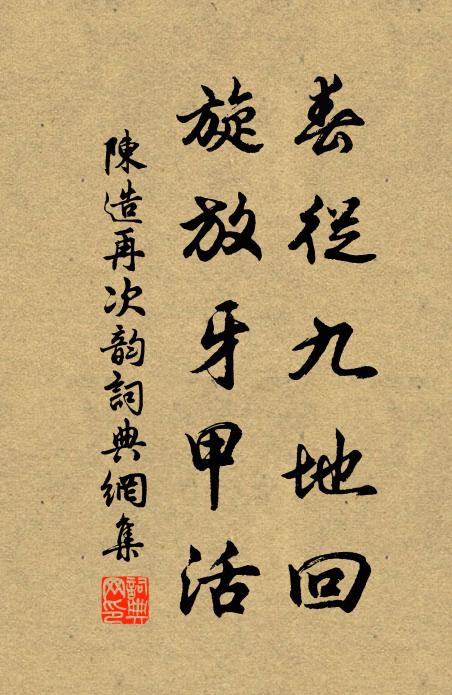 春從九地回
旋放牙甲活
陳造再次韵詞典網集
詞典網印